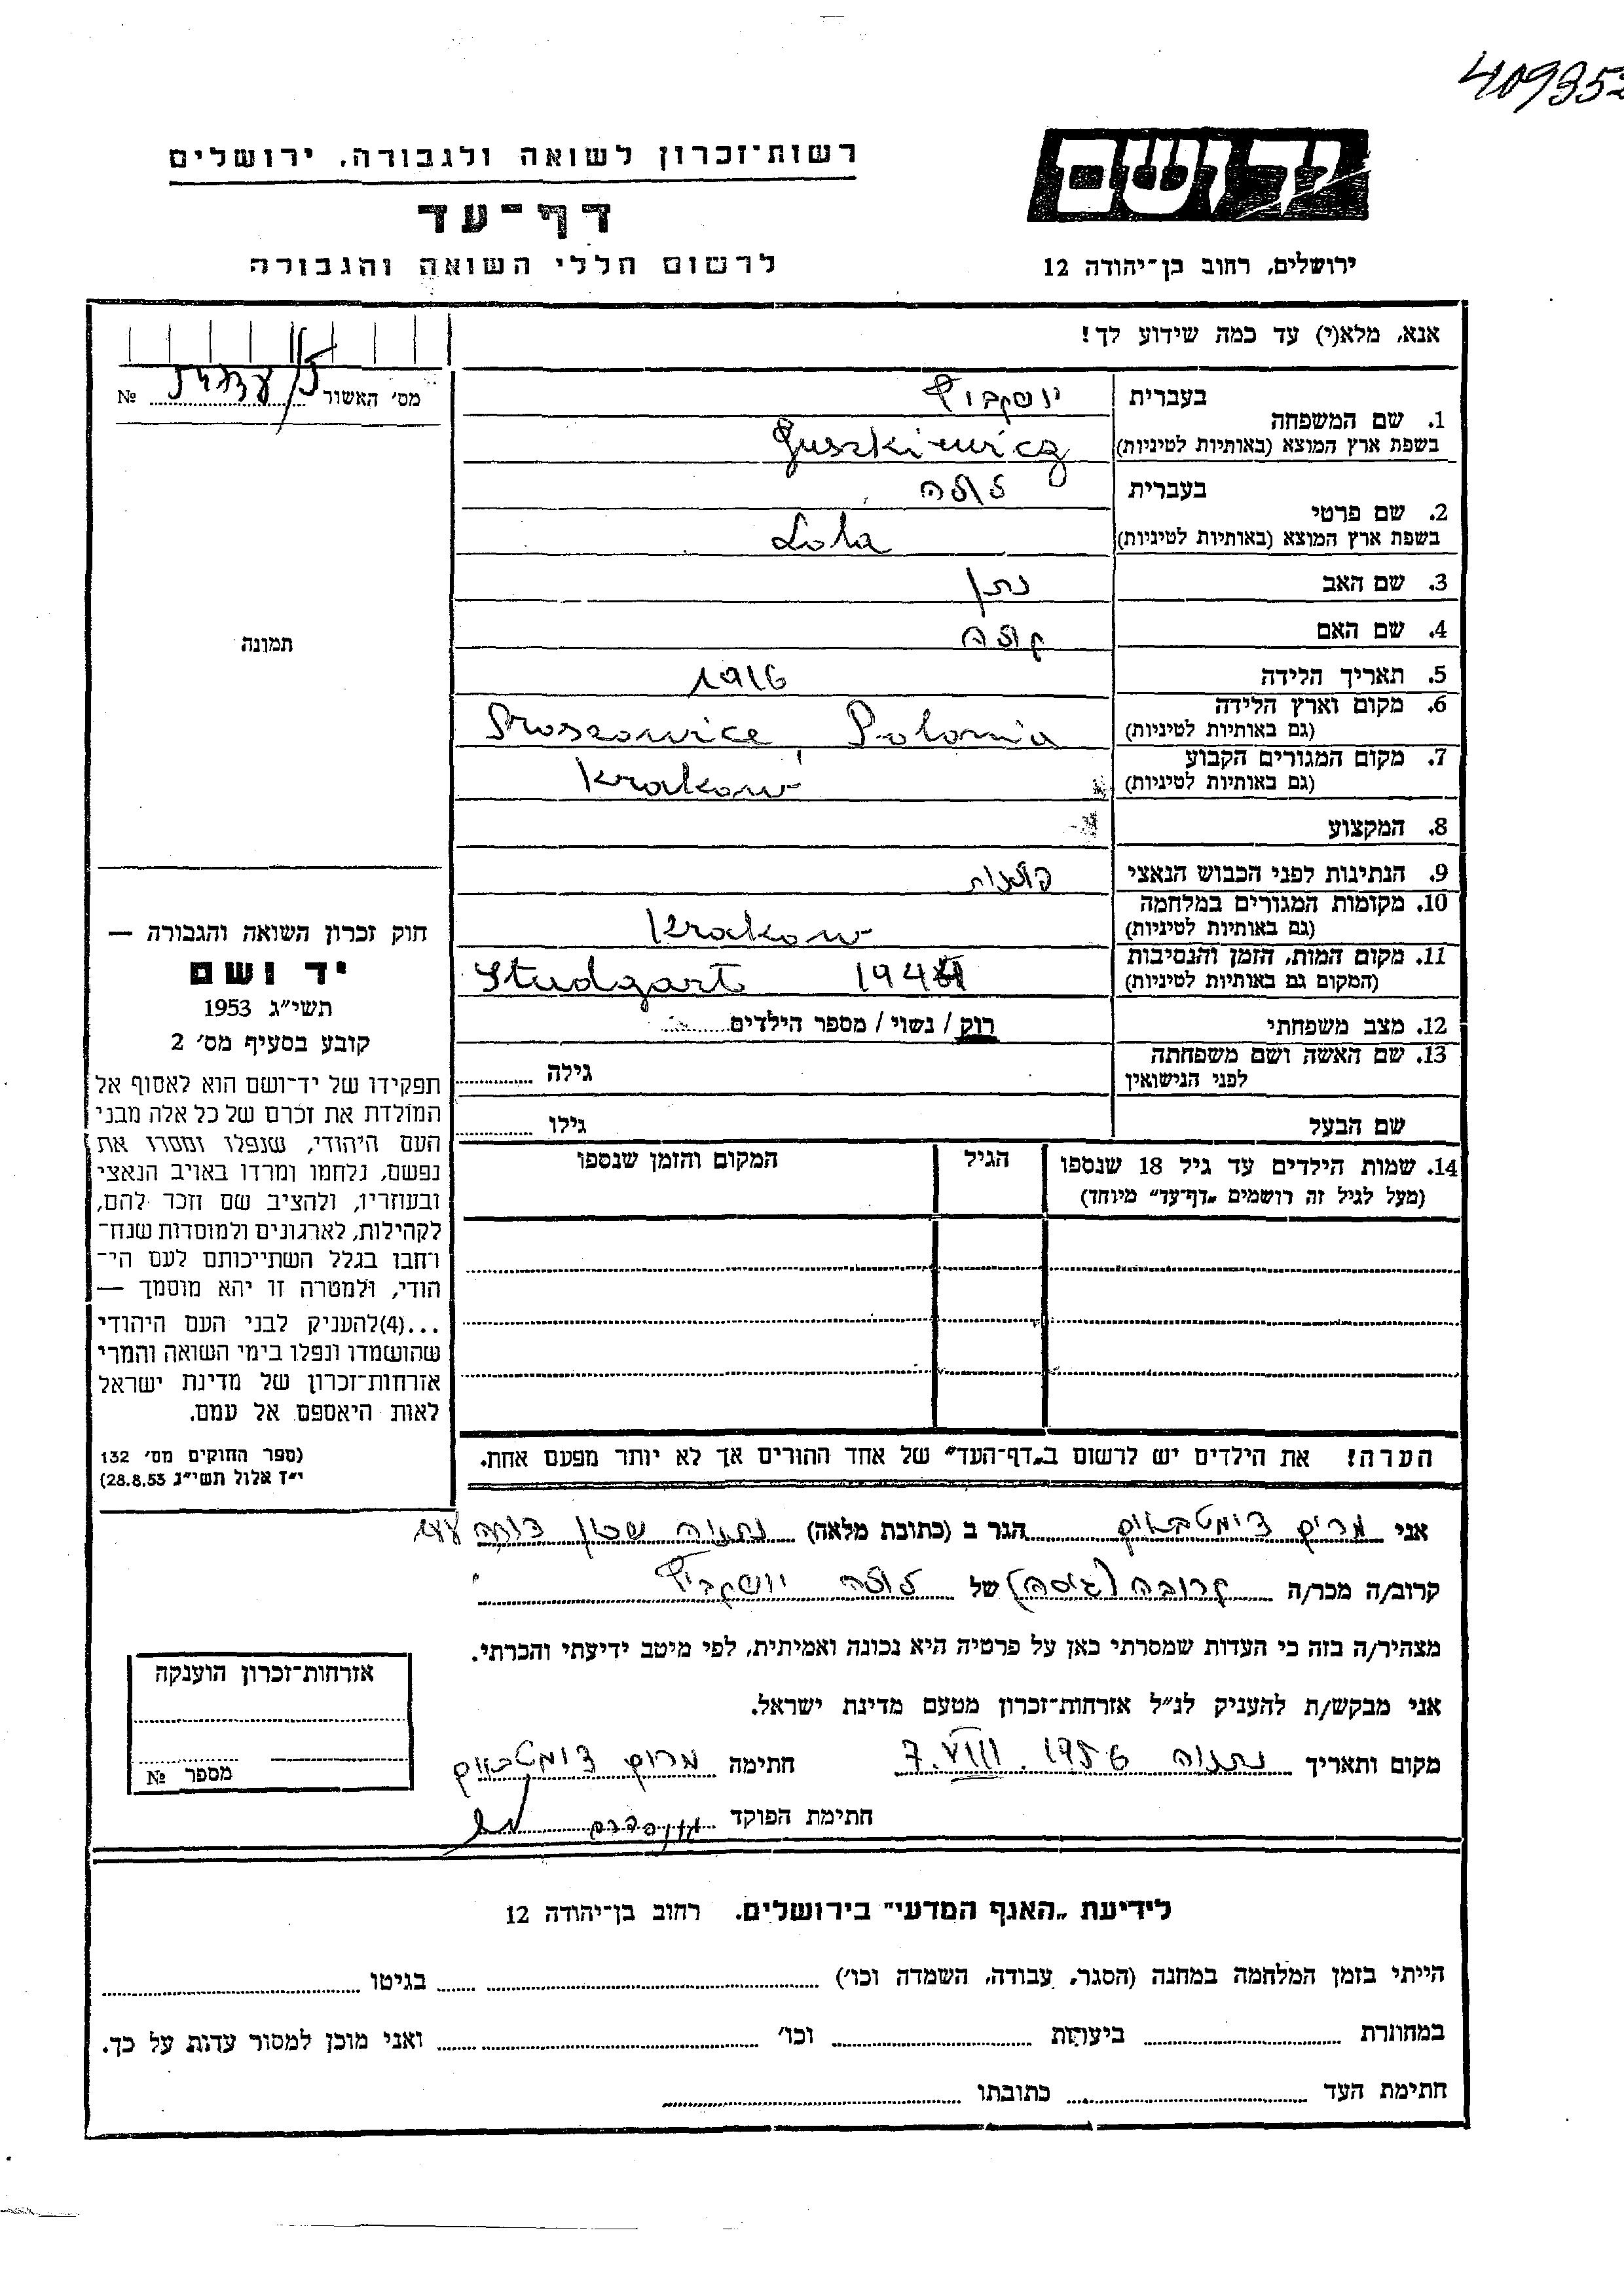 409352
יד ושם
רשות־זכרון לשואה ולגבורה, ירושלים
דף־עד
לרשום חללי השואה והגבורה
ירושלים, רחוב בן־יהודה 12
אנא, מלא(י) עד כמה שידוע לך!
מס׳ האשור №
1. שם המשפחה
בעברית יושקביץ
בשפת ארץ המוצא (באותיות לטיניות) Juszkiewicz
2. שם פרטי
בעברית לולה
בשפת ארץ המוצא (באותיות לטיניות) Lola
3. שם האב נתן
4. שם האם
5. תאריך הלידה 1916
6. מקום וארץ הלידה
(גם באותיות לטיניות) Proszowice, Polonia
7. מקום המגורים הקבוע
(גם באותיות לטיניות) Krakow
8. המקצוע
9. הנתינות לפני הכבוש הנאצי פולנית
10. מקומות המגורים במלחמה
(גם באותיות לטיניות) Krakow
11. מקום המות, הזמן והנסיבות
(המקום גם באותיות לטיניות) Studgart
12. מצב משפחתי רוק / נשוי / מספר הילדים
13. שם האשה ושם משפחתה
לפני הנישואין גילה
שם הבעל גילו
14. שמות הילדים עד גיל 18 שנספו הגיל המקום והזמן שנספו
(מעל לגיל זה רושמים „דף־עד״ מיוחד)
הערה! את הילדים יש לרשום ב„דף־העד״ של אחד ההורים אך לא יותר מפעם אחת.
תמונה
חוק זכרון השואה והגבורה —
יד ושם
תשי״ג 1953
קובע בסעיף מס׳ 2
תפקידו של יד־ושם הוא לאסוף אל
המולדת את זכרם של כל אלה מבני
העם היהודי, שנפלו ומסרו את
נפשם, נלחמו ומרדו באויב הנאצי
ובעוזריו, ולהציב שם וזכר להם,
לקהילות, לארגונים ולמוסדות שנח־
רחבו בגלל השתייכותם לעם הי־
הודי, ולמטרה זו יהא מוסמך —
...(4)להעניק לבני העם היהודי
שהושמדו ונפלו בימי השואה והמרי
אזרחות־זכרון של מדינת ישראל
לאות היאספם אל עמם.
(ספר החוקים מס׳ 132
י״ז אלול תשי״ג 28.8.53)
אני מרים הגר ב (כתובת מלאה) נתניה שכון
קרוב/ה מכר/ה קרובה (גיסה) של לולה יושקביץ
מצהיר/ה בזה כי העדות שמסרתי כאן על פרטיה היא נכונה ואמיתית, לפי מיטב ידיעתי והכרתי.
אני מבקש/ת להעניק לנ״ל אזרחות־זכרון מטעם מדינת ישראל.
מקום ותאריך נתניה 7.VIII.1956 חתימה מרים
חתימת הפוקד
אזרחות־זכרון הוענקה
מספר №
לידיעת „האגף המדעי״ בירושלים. רחוב בן־יהודה 12
הייתי בזמן המלחמה במחנה (הסגר, עבודה, השמדה וכו׳) בגיטו
במחתרת ביערות וכו׳ ואני מוכן למסור עדות על כך.
חתימת העד כתובתו